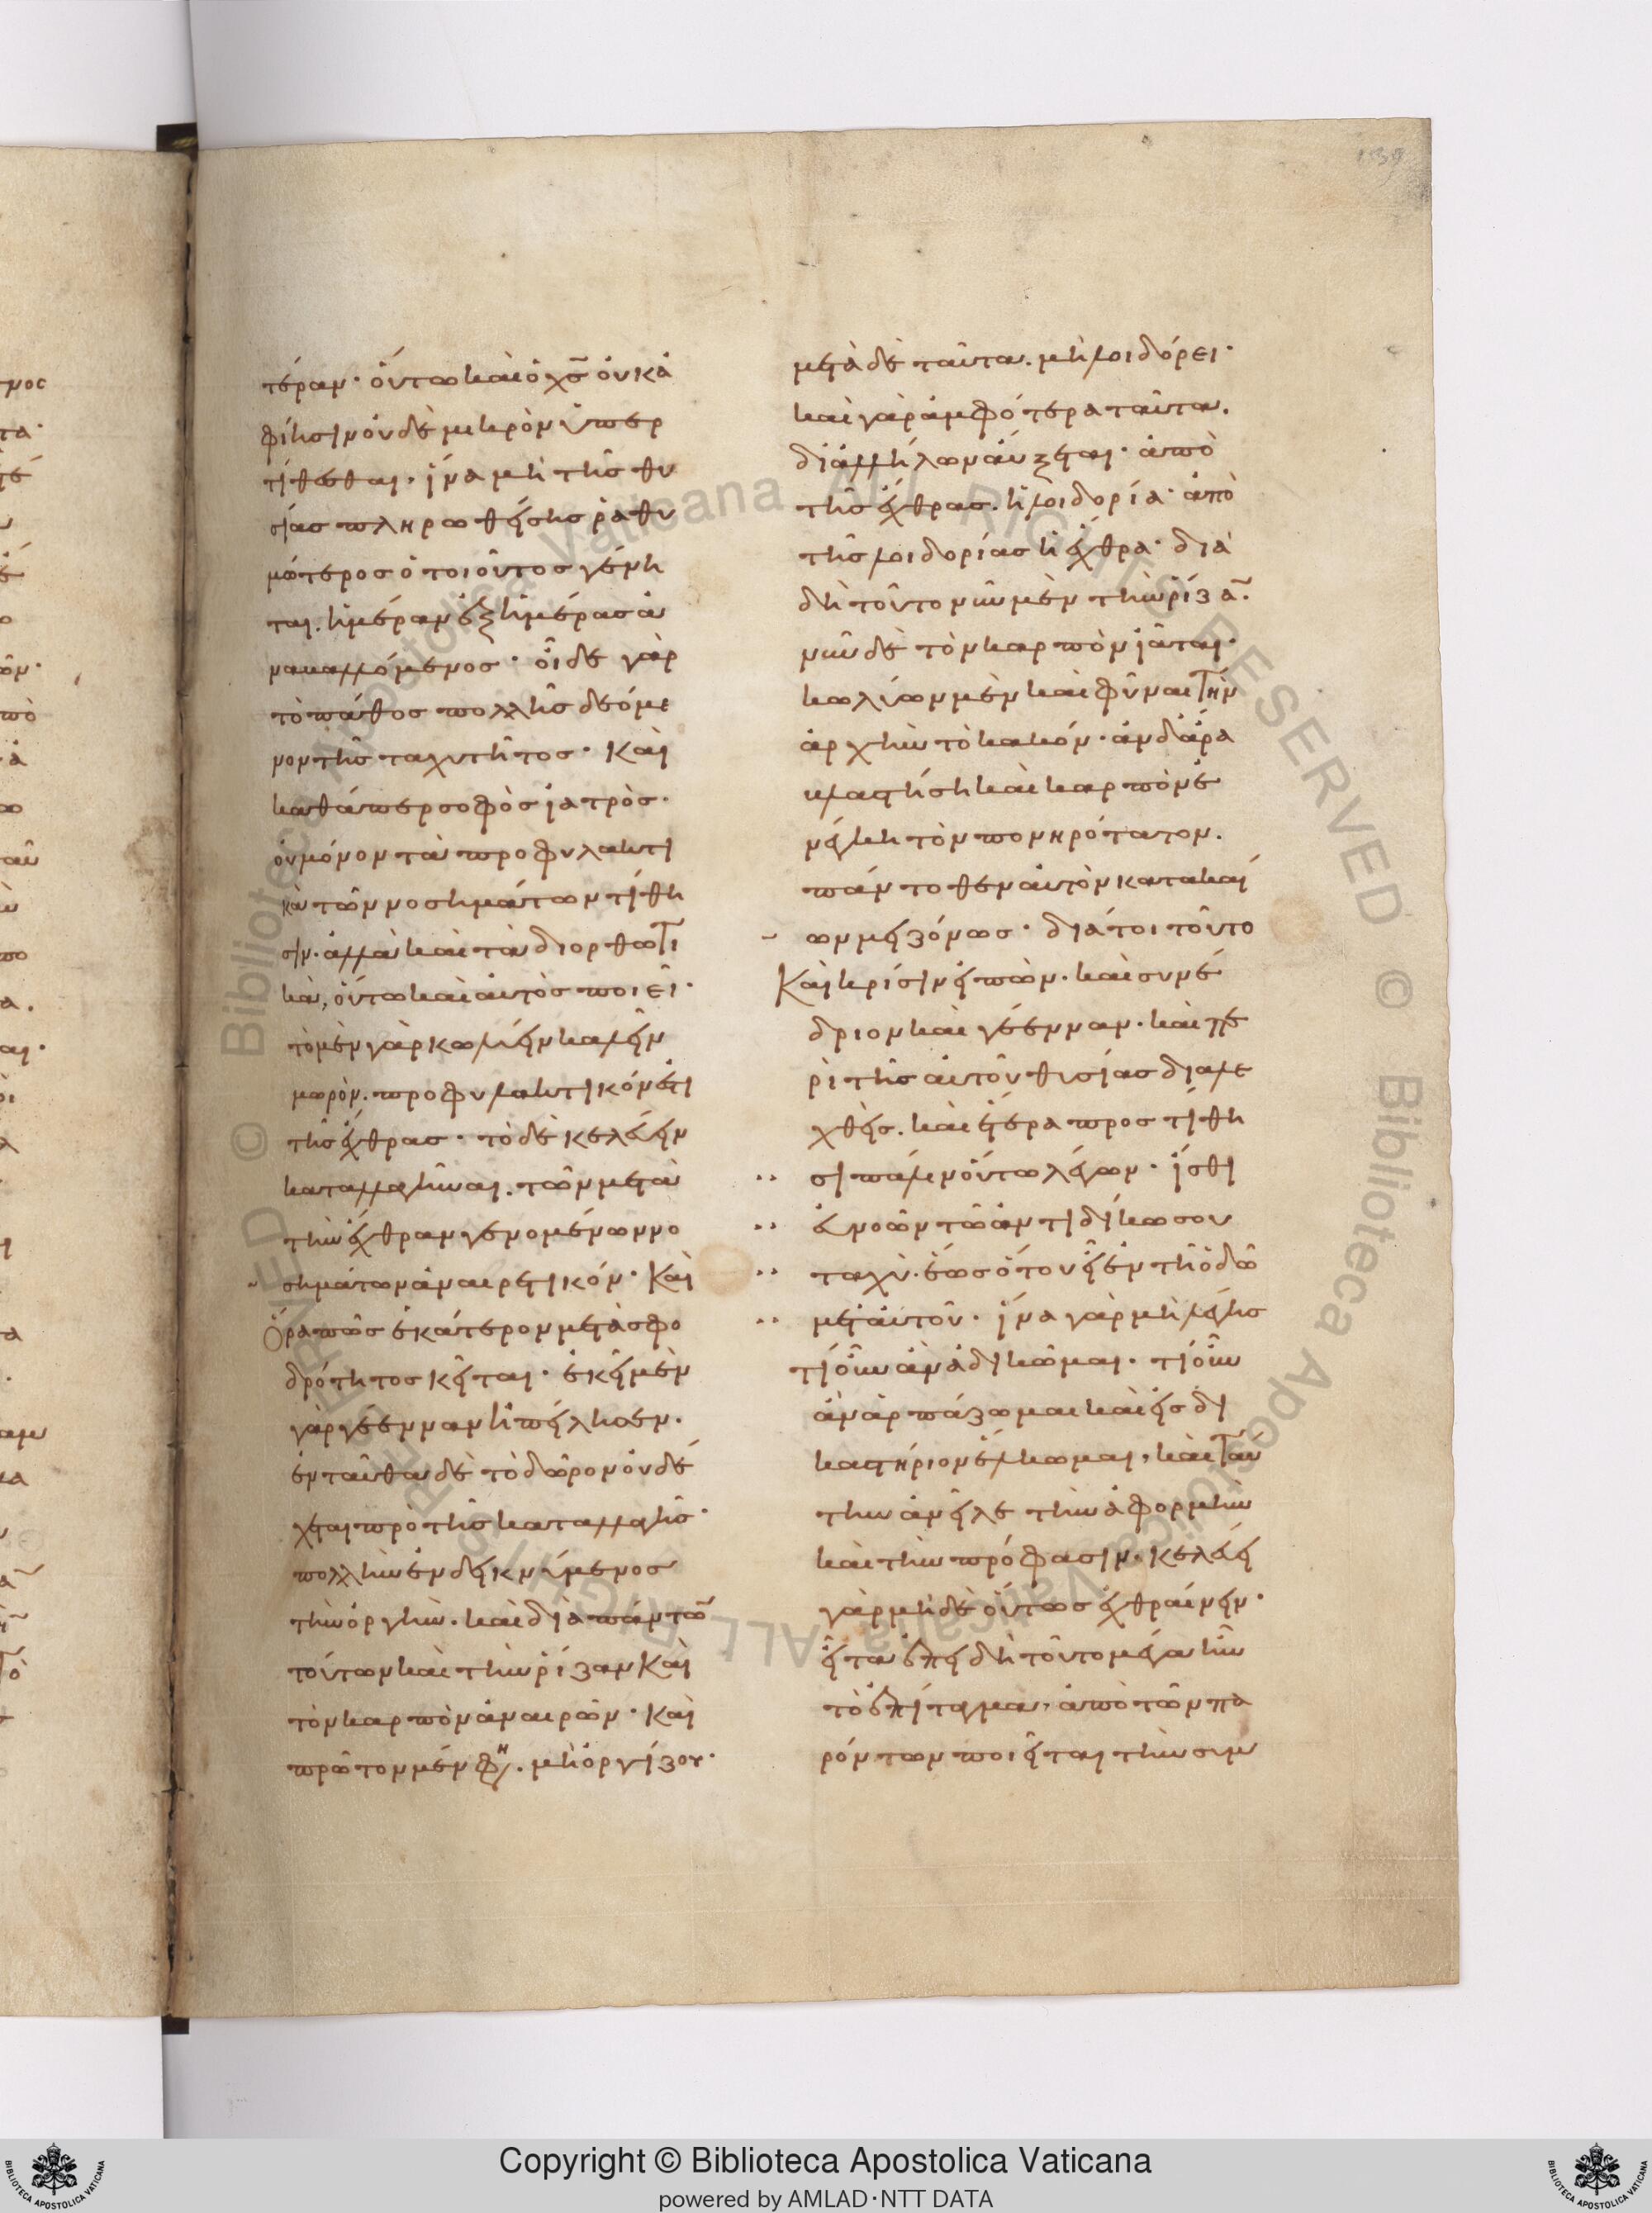 139
τέραν· ὅυτω καὶ ὁ χ̅ς̅ ὀυκ ἀ
φίησιν ὀυδὲ μικρὸν ὑπερ
τίθεσθαι· ἵνα μὴ τῆς θυ
σίας πληρωθείσης ῥαθυ
μότερος ὁ τοιοῦτος γένη
ται. ἡμέραν ἐξ ἡμέρας ἀ
ναβαλλόμενος· οἶδε γὰρ
τὸ πάθος πολλῆς δεόμε
νον τῆς ταχυτῆτος· καὶ
καθάπερ σοφὸς ἰατρὸς·
ὀυ μόνον τὰ προφυλακτι
κὰ τῶν νοσημάτων τίθη
σιν. ἀλλὰ καὶ τὰ διορθωτι
κὰ, ὅυτω καὶ ἀυτὸς ποιεῖ·
τὸ μὲν γὰρ κωλύειν καλεῖν
μωρὸν. προφυλακτικόν ἐστι
τῆς ἔχθρας· τὸ δὲ κελεύειν
καταλλαγῆναι. τῶν μετὰ
τὴν ἔχθραν γενομένων νο
σημάτων ἀναιρετικόν· Καὶ
ὅρα πῶς ἑκάτερον μετὰ σφο
δρότητος κεῖται· ἐκεῖ μὲν
γὰρ γέενναν ἠπείλησεν.
ἐνταῦθα δὲ τὸ δῶρον ὀυ δέ
χεται πρὸ τῆς καταλλαγῆς·
πολλὴν ἐνδεικνύμενος
τὴν ὀργὴν. καὶ διὰ πάντω̅
τούτων καὶ τὴν ῥίζαν καὶ
τὸν καρπὸν ἀναιρῶν· Καὶ
πρῶτον μέν φη. μὴ ὀργίζου·
μετὰ δὲ ταῦτα. μὴ λοιδόρει·
καὶ γὰρ ἀμφότερα ταῦτα.
δι ἀλλήλων ἄυξεται· ἀπὸ
τῆς ἔχθρας. ἡ λοιδορία· ἀπὸ
τῆς λοιδορίας ἡ ἔχθρα· διὰ
δὴ τοῦτο νῦν μὲν τὴν ῥίζα̅.
νῦν δὲ τὸν καρπὸν ἰᾶται·
κωλύων μὲν καὶ φῦναι τὴν
ἀρχὴν τὸ κακόν· ἂν δ ἄρα
βλαστήση καὶ καρπὸν ἐ
νέγκη τὸν πονηρότατον.
πάντοθεν ἀυτὸν κατακαί
ων μειζόνως· διά τοι τοῦτο
Καὶ κρίσιν ἐιπὼν· καὶ συνέ
δριον καὶ γέενναν· καὶ πε
ρὶ τῆς ἀυτοῦ θυσίας διαλε
χθεὶς. καὶ ἕτερα προστίθη
σι πάλιν ὅυτω λέγων· ἴσθι
ἐυνοῶν τῶ ἀντιδίκω σου
ταχὺ· ἕως ὅτου εἶ ἐν τῆ ὁδῶ
μετ ἀυτοῦ· ἵνα γὰρ μὴ λέγης
τί οὖν ἂν ἀδικῶμαι· τί οὖν
ἂν ἁρπάζωμαι καὶ ἐις δι
καστήριον ἕλκωμαι, καὶ ταύ
την ἀνεῖλε τὴν ἀφορμὴν
καὶ τὴν πρόφασιν· κελεύει
γὰρ μὴ δὲ ὅυτως ἐχθραίνειν·
εἶτα ἐπειδὴ τοῦτο μέγα ἦν
τὸ ἐπίταγμα, ἀπὸ τῶν πα
ρόντων ποιεῖται τὴν συμ